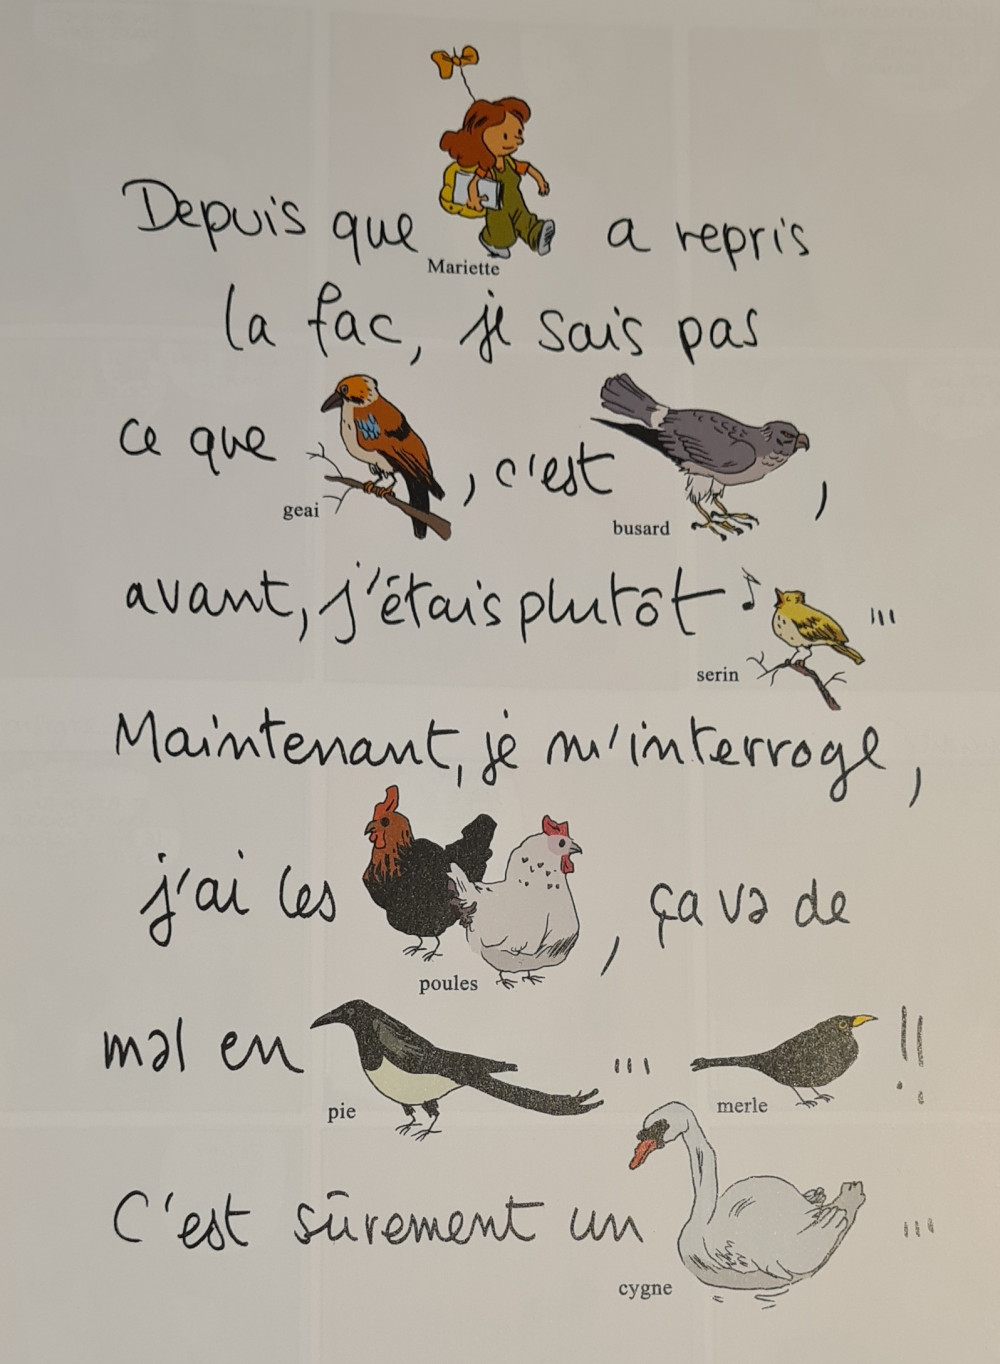 Depuis que Mariette a repris
la fac, je sais pas
ce que geai, c'est busard,
avant, j'étais plutôt serin...
Maintenant, je m'interroge,
j'ai les poules, ça va de
mal en pie... merle !!
C'est sûrement un cygne...